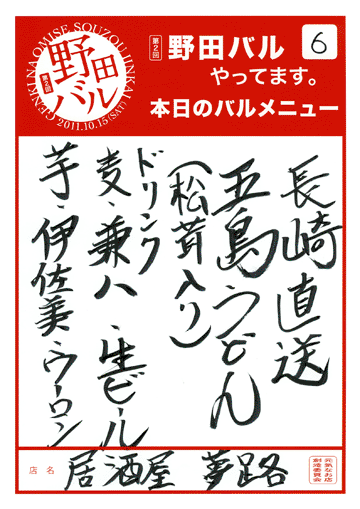 GENKI NA OMISE SOUZOU IINKAI
第2回
野田
バル
2011.10.15(SAT)
第2回
野田バル
やってます。
6
本日のバルメニュー
長崎直送
五島うどん
(松茸入り)
ドリンク
麦・兼八・生ビール
芋・伊佐美・ウーロン
店名
居酒屋 夢路
元気なお店
創造委員会